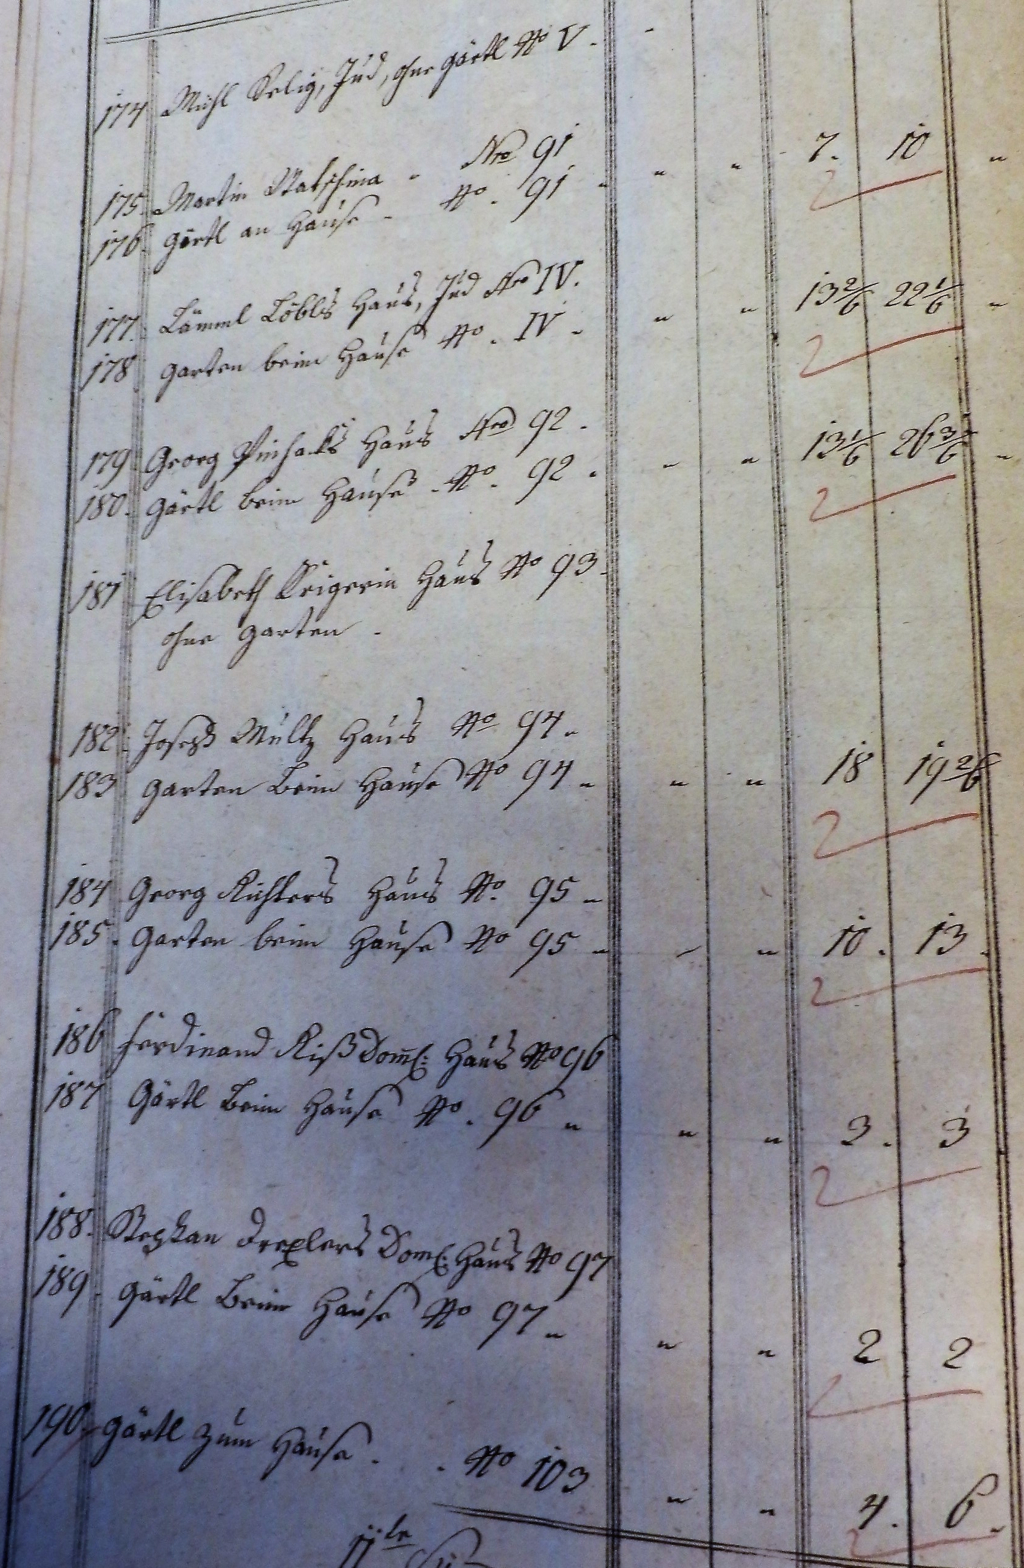 174 Selig, Jud, ohne gärtl No V. -
175 Martin No 91 " " 7. 10 "
176 gärtl an Hause - No. 91
177. Lämml Löbls Haus, Jud No IV.
178 garten beim Hause No. IV - " " 13 2/6 22 1/6 "
179 Georg Haus No 92 -
180. gärtl beim Hause - No. 92 - " " 13 1/6 26 3/6 "
181 Elisabeth Haus No 93
ohne garten -
182 Joseph Multz Haus No 94 -
183 garten beim Hause No 94 - " " 18 19 2/6
184 Georg Richters Haus No. 95 -
185. garten beim Hause No 95 - " " 10. 13.
186 ferdinand Riß Dom: Haus No 96
187 gärtl beim Hause No. 96 - " " 3. 3
188. Stephan Drexlers Dom: Haus No 97
189 gärtl beim Hause No 97 - " " 2 2
190 gärtl zum Hause . . No 103 " " 4. 6.